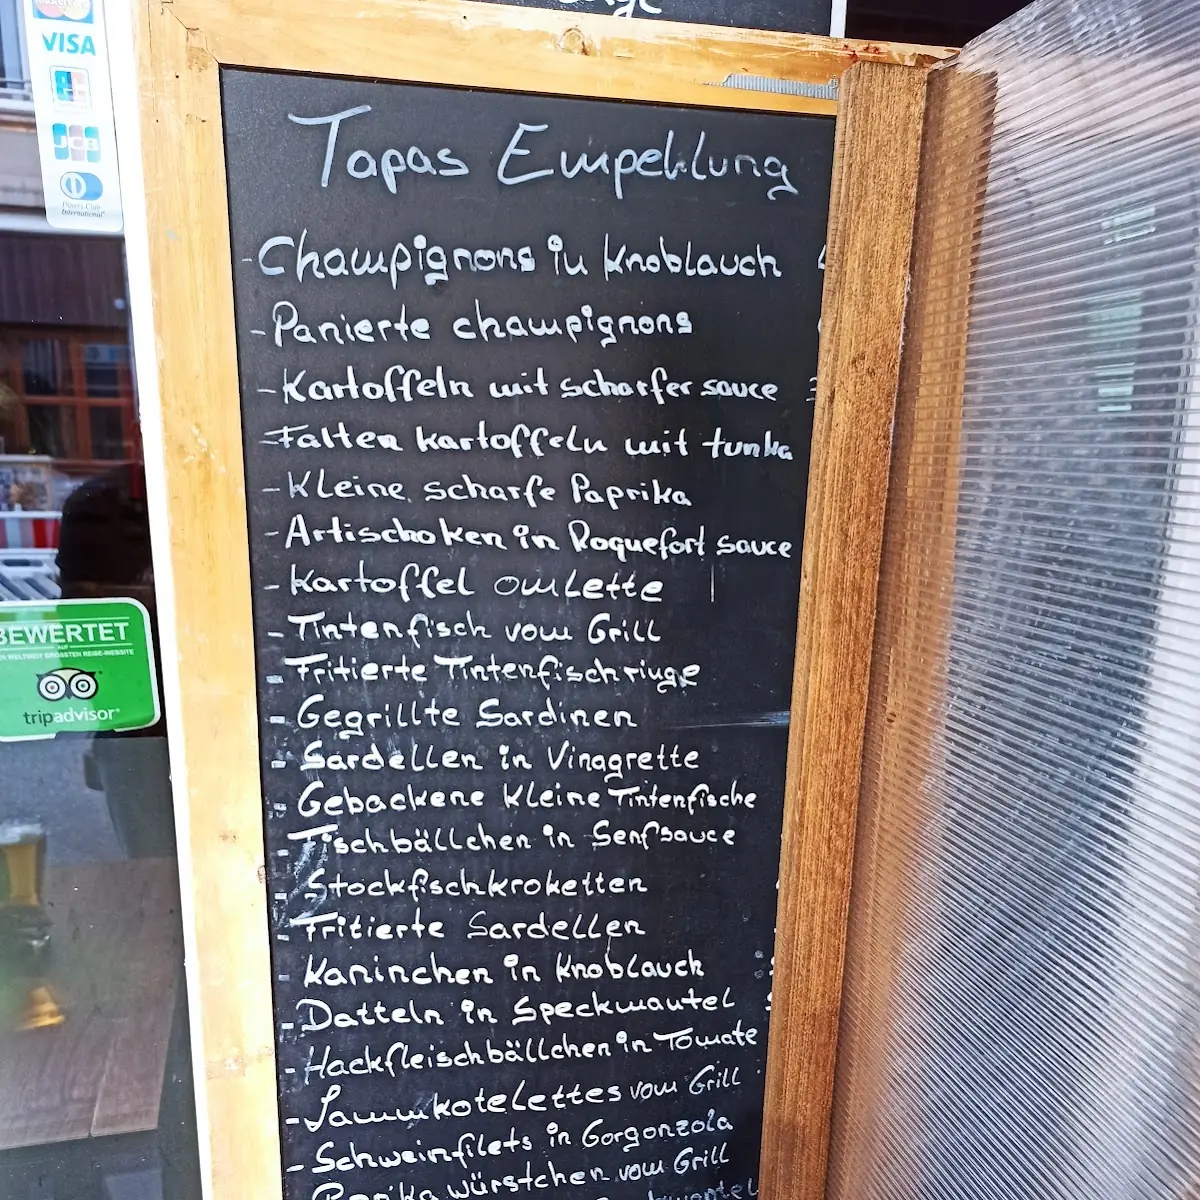 mastercard
VISA
JCB
Diners Club
International
Tapas Empehlung
- Champignons in Knoblauch
- Panierte champignons
- Kartoffeln mit scharfer sauce
- Falten kartoffeln mit tunka
- Kleine scharfe Paprika
- Artischoken in Roquefort sauce
- Kartoffel omlette
- Tintenfisch vom Grill
- Fritierte Tintenfischringe
- Gegrillte Sardinen
- Sardellen in Vinagrette
- Gebackene kleine Tintenfische
- Fischbällchen in Senfsauce
- Stockfischkroketten
- Fritierte Sardellen
- Kaninchen in Knoblauch
- Datteln in Speckmantel
- Hackfleischbällchen in Tomate
- Lammkotelettes vom Grill
- Schweinfilets in Gorgonzola
Paprika würstchen vom Grill
BEWERTET
AUF
WELTWEIT GRÖSSTEN REISE-WEBSITE
tripadvisor